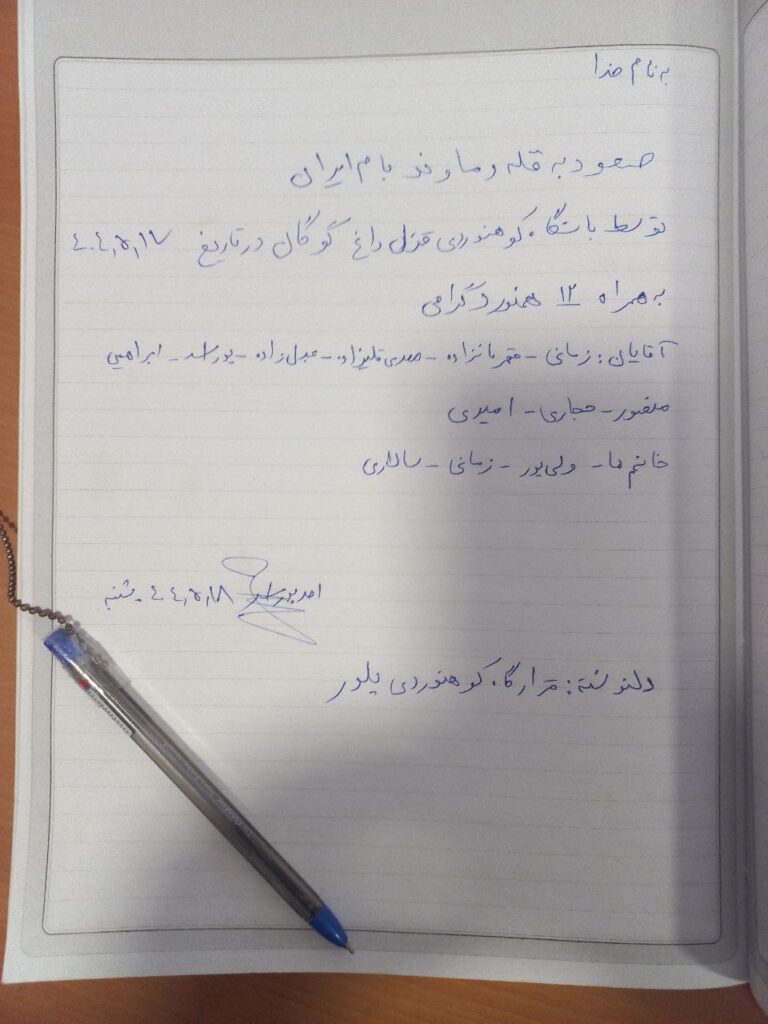 به نام خدا
صعود به قله دماوند بام ایران
توسط باشگاه کوهنوردی قزل داغ گوگان در تاریخ ۴۰۴,۵,۱۷
به همراه ۱۲ همنورد گرامی
آقایان: زمانی - قهرمانزاده - مهدی قلیزاده - عبدل زاده - پوراسد - ابراهیمی
غفور - حجازی - امیری
خانم ها - ولی پور - زمانی - سالاری
پوراسد ۴۰۴,۵,۱۸ شنبه
دلنوشته: قرارگاه کوهنوردی پلور